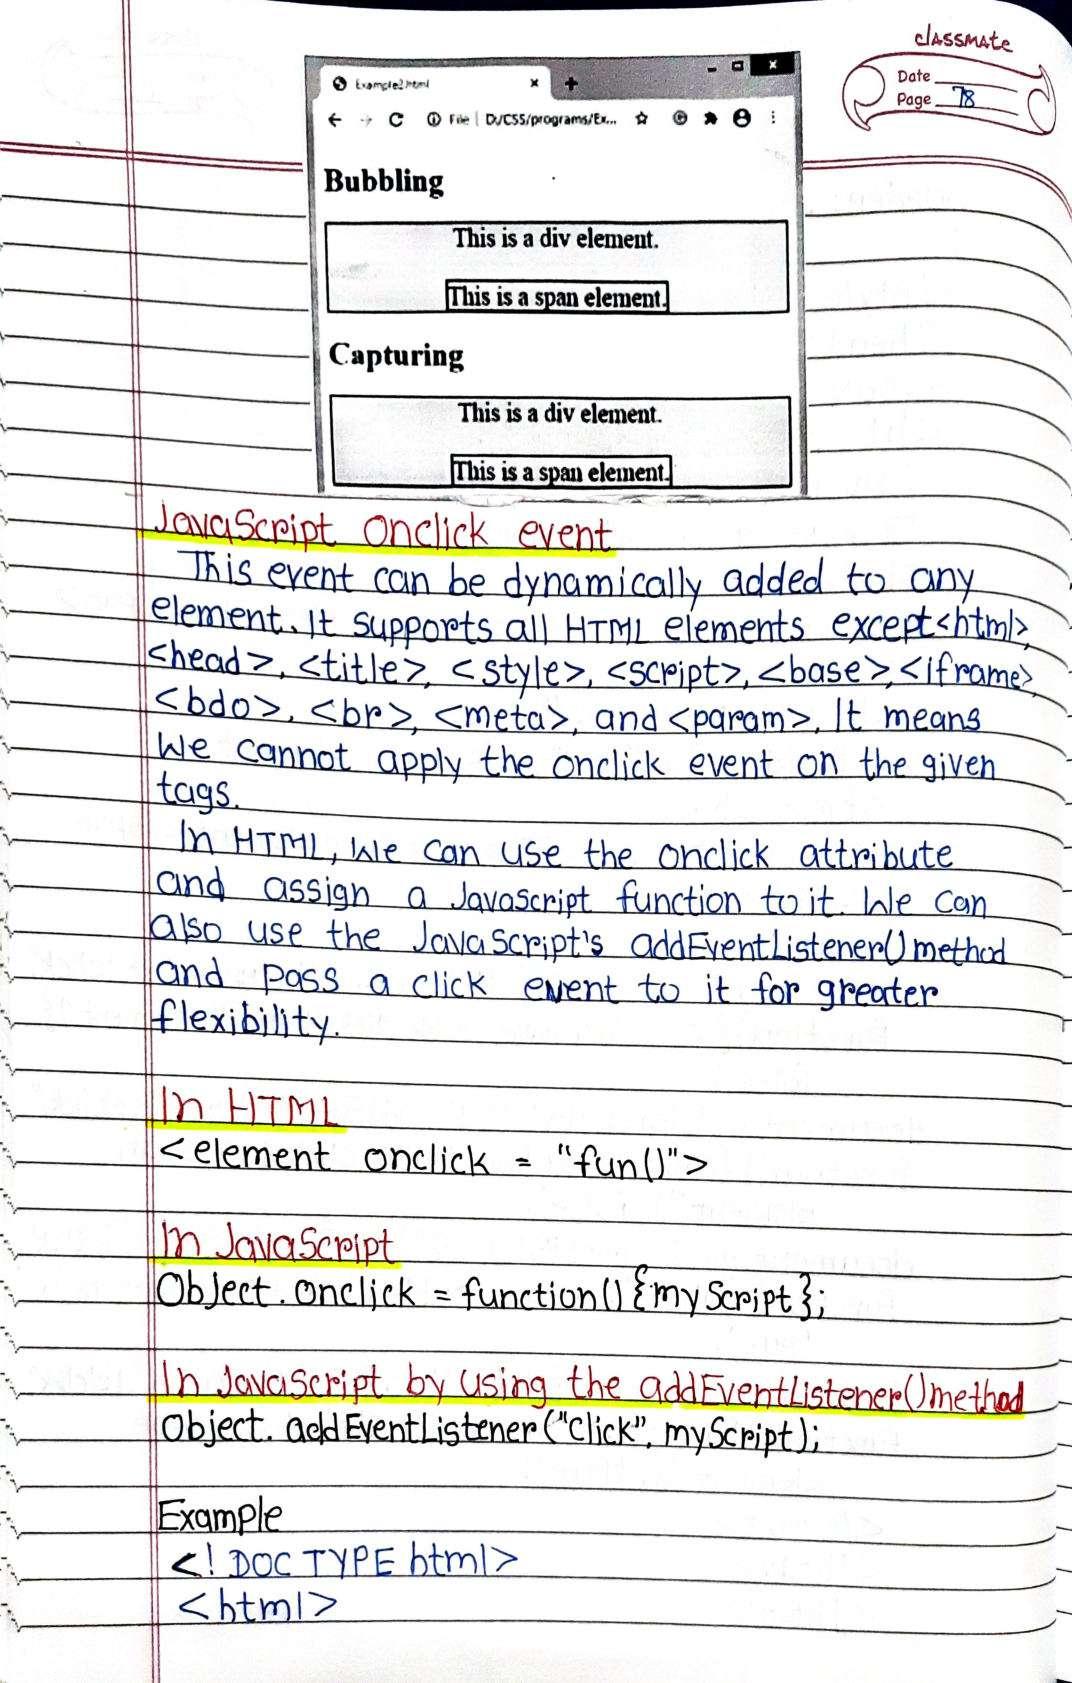 classmate
Date
Page 78
Example2.html
File | D:/CSS/programs/Ex...
Bubbling
This is a div element.
This is a span element.
Capturing
This is a div element.
This is a span element.
JavaScript onclick event
This event can be dynamically added to any
element. It supports all HTML elements except <html>,
<head>, <title>, <style>, <script>, <base>, <iframe>,
<bdo>, <br>, <meta>, and <param>. It means
We cannot apply the onclick event on the given
tags.
In HTML, we can use the onclick attribute
and assign a JavaScript function to it. We can
also use the JavaScript's addEventListener() method
and pass a click event to it for greater
flexibility.
In HTML
<element onclick = "fun()">
In JavaScript
Object.onclick = function() {myScript};
In JavaScript by using the addEventListener() method
Object.addEventListener("click", myScript);
Example
<!DOCTYPE html>
<html>